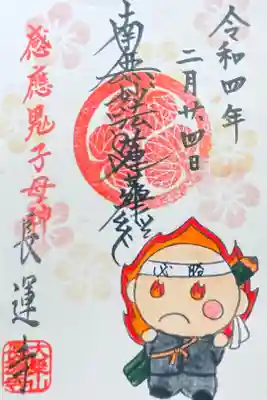 令和四年
二月廿四日
南無妙法蓮華経
感應鬼子母神
長運寺
必勝